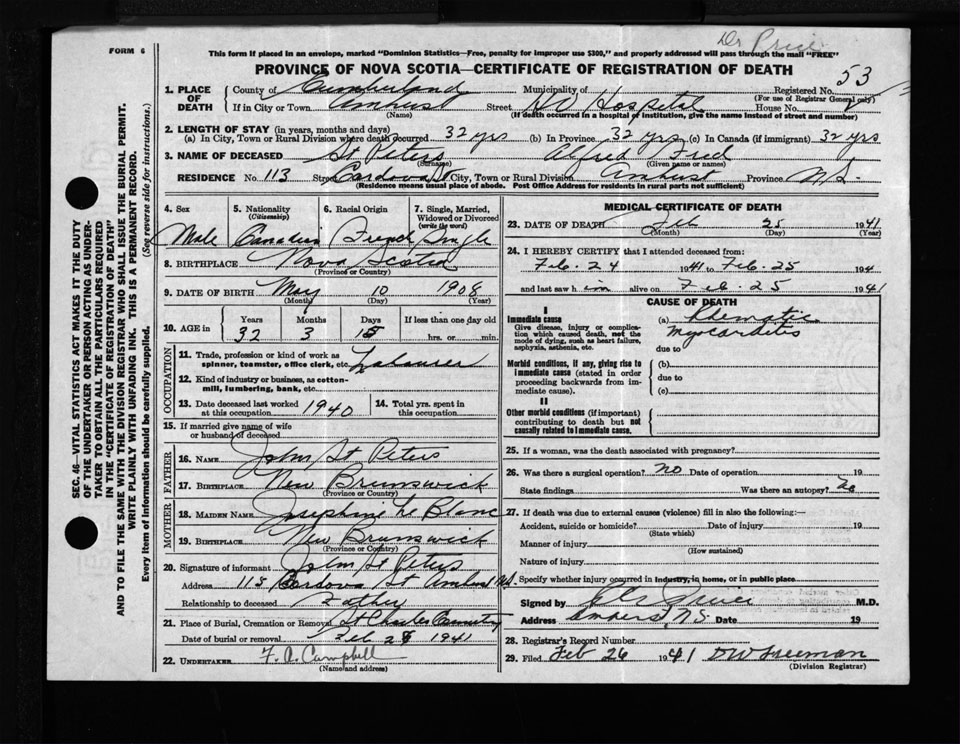 Dr Price
FORM 6
This form if placed in an envelope, marked "Dominion Statistics—Free, penalty for improper use $300," and properly addressed will pass through the mail "FREE"
PROVINCE OF NOVA SCOTIA—CERTIFICATE OF REGISTRATION OF DEATH
53
1. PLACE OF DEATH County of Cumberland Municipality of Registered No.
(For use of Registrar General only)
If in City or Town Amherst Street Hospital House No.
(Name) (If death occurred in a hospital or institution, give the name instead of street and number)
2. LENGTH OF STAY (in years, months and days)
(a) In City, Town or Rural Division where death occurred 32 yrs (b) In Province 32 yrs (c) In Canada (if immigrant) 32 yrs
3. NAME OF DECEASED St Peters Alfred Fred
(Surname) (Given name or names)
RESIDENCE No. 113 Street Cordova St City, Town or Rural Division Amherst Province N.S.
(Residence means usual place of abode. Post Office Address for residents in rural parts not sufficient)
4. Sex
Male
5. Nationality
(Citizenship)
Canadian
6. Racial Origin
French
7. Single, Married,
Widowed or Divorced
(write the word)
Single
8. BIRTHPLACE Nova Scotia
(Province or Country)
9. DATE OF BIRTH May 10 1908
(Month) (Day) (Year)
10. AGE in Years Months Days If less than one day old
32 3 15 hrs. or min.
OCCUPATION
11. Trade, profession or kind of work as
spinner, teamster, office clerk, etc. Labourer
12. Kind of industry or business, as cotton-
mill, lumbering, bank, etc.
13. Date deceased last worked
at this occupation 1940
14. Total yrs. spent in
this occupation
15. If married give name of wife
or husband of deceased
FATHER
16. Name John St Peters
17. Birthplace New Brunswick
(Province or Country)
MOTHER
18. Maiden Name Josephine Le Blanc
19. Birthplace New Brunswick
(Province or Country)
20. Signature of informant John St Peters
Address 113 Cordova St Amherst N.S.
Relationship to deceased Father
21. Place of Burial, Cremation or Removal St Charles Cemetery
Date of burial or removal Feb 1941
22. Undertaker F. A. Campbell
(Name and address)
MEDICAL CERTIFICATE OF DEATH
23. DATE OF DEATH Feb 25 1941
(Month) (Day) (Year)
24. I HEREBY CERTIFY that I attended deceased from:
Feb. 24 1941 to Feb. 25 194
and last saw him alive on Feb. 25 1941
CAUSE OF DEATH
I
Immediate cause
Give disease, injury or complica-
tion which caused death, not the
mode of dying, such as heart failure,
asphyxia, asthenia, etc.
(a) Rhematic
myocarditis
due to
Morbid conditions, if any, giving rise to
immediate cause (stated in order
proceeding backwards from im-
mediate cause).
(b)
due to
(c)
II
Other morbid conditions (if important)
contributing to death but not
causally related to immediate cause.
25. If a woman, was the death associated with pregnancy?
26. Was there a surgical operation? no Date of operation 19
State findings Was there an autopsy? no
27. If death was due to external causes (violence) fill in also the following:—
Accident, suicide or homicide? Date of injury 19
(State which)
Manner of injury
(How sustained)
Nature of injury
Specify whether injury occurred in industry, in home, or in public place
Signed by Price M.D.
Address Amherst N.S. Date 19
28. Registrar's Record Number
29. Filed Feb 26 1941 DW Freeman
(Division Registrar)
SEC. 46—VITAL STATISTICS ACT MAKES IT THE DUTY
OF THE UNDERTAKER OR PERSON ACTING AS UNDER-
TAKER TO OBTAIN ALL THE PARTICULARS REQUIRED
IN THE "CERTIFICATE OF REGISTRATION OF DEATH"
AND TO FILE THE SAME WITH THE DIVISION REGISTRAR WHO SHALL ISSUE THE BURIAL PERMIT.
WRITE PLAINLY WITH UNFADING INK. THIS IS A PERMANENT RECORD.
Every item of information should be carefully supplied. (See reverse side for instructions.)